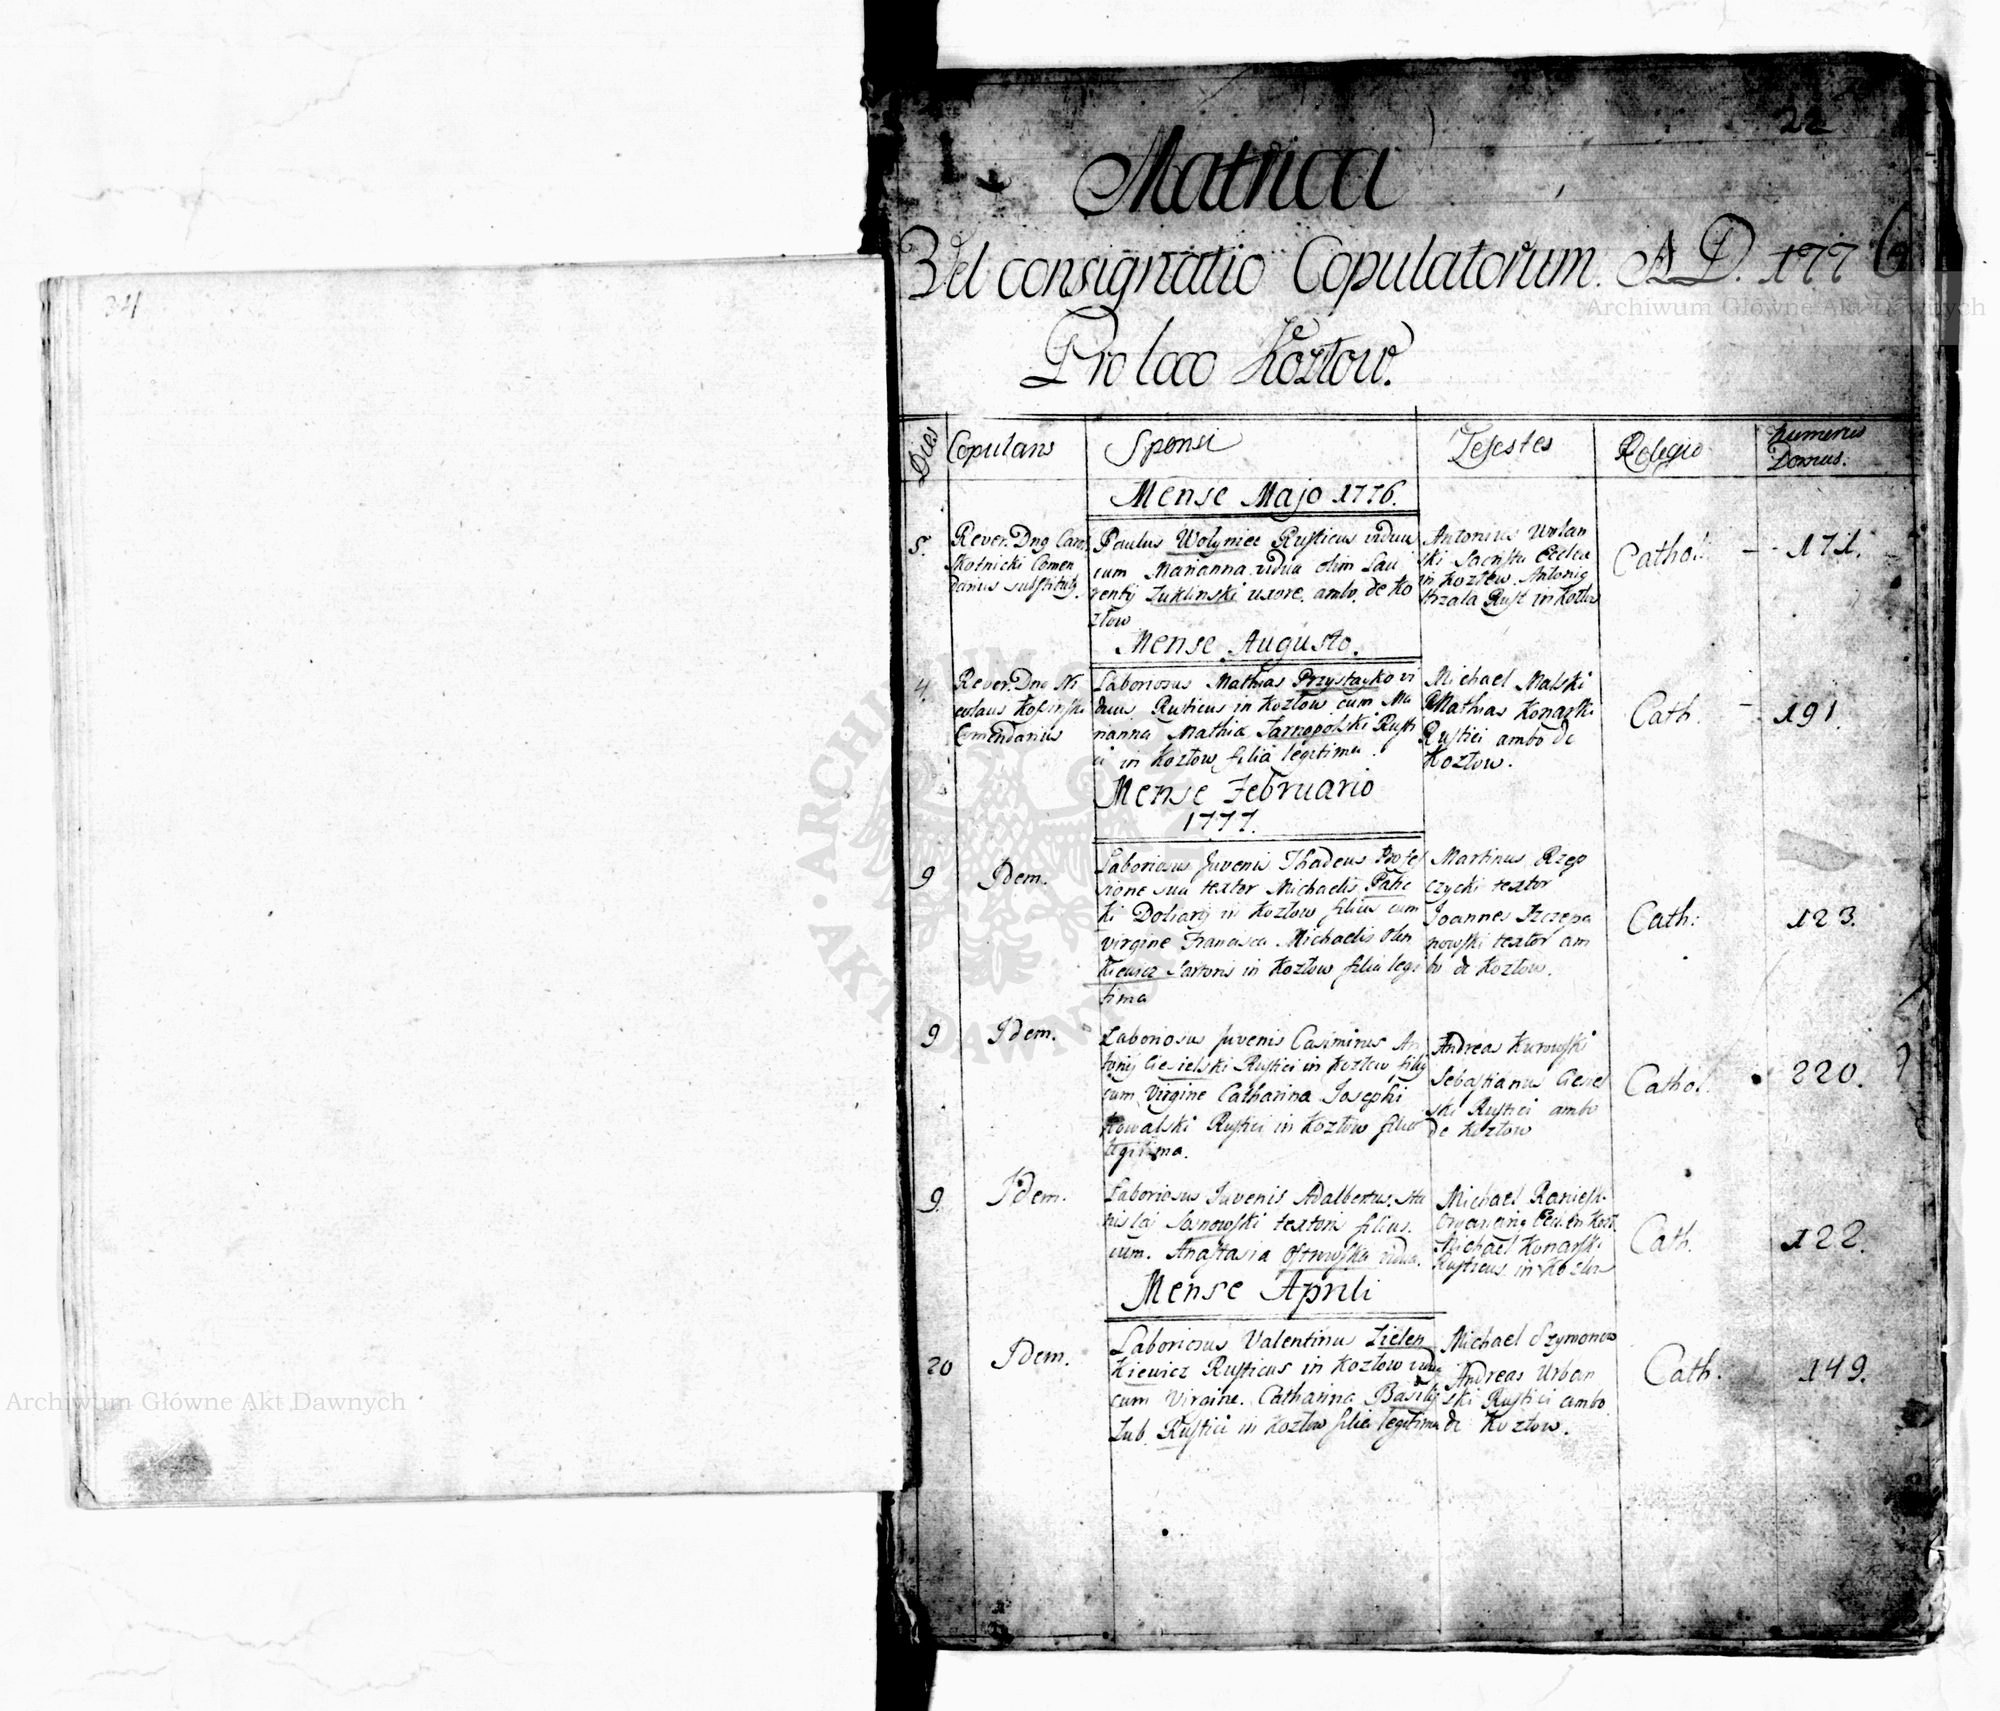 34
22
Matrica
Vel consignatio Copulatorum. A D. 1776
Pro loco Kozłow.
Dies
Copulans
Sponsi
Testes
Religio
Numerus
Domus.
Mense Majo 1776.
5.
Rever. Dnq Caro
Skotnicki Comen
darius substitutq
Paulus Wołyniec Rusticus viduus
cum Marianna vidua olim Lau
rentij Łuklinski uxore. ambo. de Ko
złow
Antonius Urban
ski Sacrista Eccles
in Kozłow. Antoniq
Strzala Rust in Kozłow
Cathol.
171.
Mense Augusto.
4.
Rever. Dnq Ni
colaus Kosinski
Comendarius
Laboriosus Mathias Przystayko vi
duus Rusticus in Kozłow cum Ma
rianna Mathiæ Tarnopolski Rusti
ci in Kozłow filia legitima.
Michael Malski
Mathias Konarski
Rustici ambo de
Kozłow.
Cath.
191.
Mense Februario
1777.
9
Idem.
Laboriosus Juvenis Thadeus Profes
sione sua textor Michaelis Palic
ki Doliarij in Kozłow filius cum
virgine Francisca Michaelis Olen
kiewicz Sartoris in Kozłow filia legi
tima
Martinus Rzep
czycki textor
Joannes Szczepa
nowski textor am
bo de Kozłow.
Cath:
123.
9
Idem.
Laboriosus Juvenis Casimirus An
tonij Ciesielski Rustici in Kozłow filiq
cum Virgine Catharina Josephi
Kowalski Rustici in Kozłow filia
legitima.
Andreas Kurowski
Sebastianus Ciesiel
ski Rustici ambo
de Kozłow
Cathol.
220.
9.
Idem.
Laboriosus Juvenis Adalbertus Sta
nislai Sanowski textoris filius.
cum. Anastasia Ostrowska vidua.
Michael
Organariq Eccl. in Kozł.
Michael Konarski
Rusticus in Kozłow
Cath.
122.
Mense Aprili
20
Idem.
Laboriosus Valentinus Zielen
kiewicz Rusticus in Kozłow viduq
cum Virgine. Catharina Basilij
Łub. Rustici in Kozłow filia legitima
Michael Szymonow
Andreas Urban
ski Rustici ambo
de Kozłow.
Cath.
149.
Archiwum Główne Akt Dawnych
Archiwum Główne Akt Dawnych